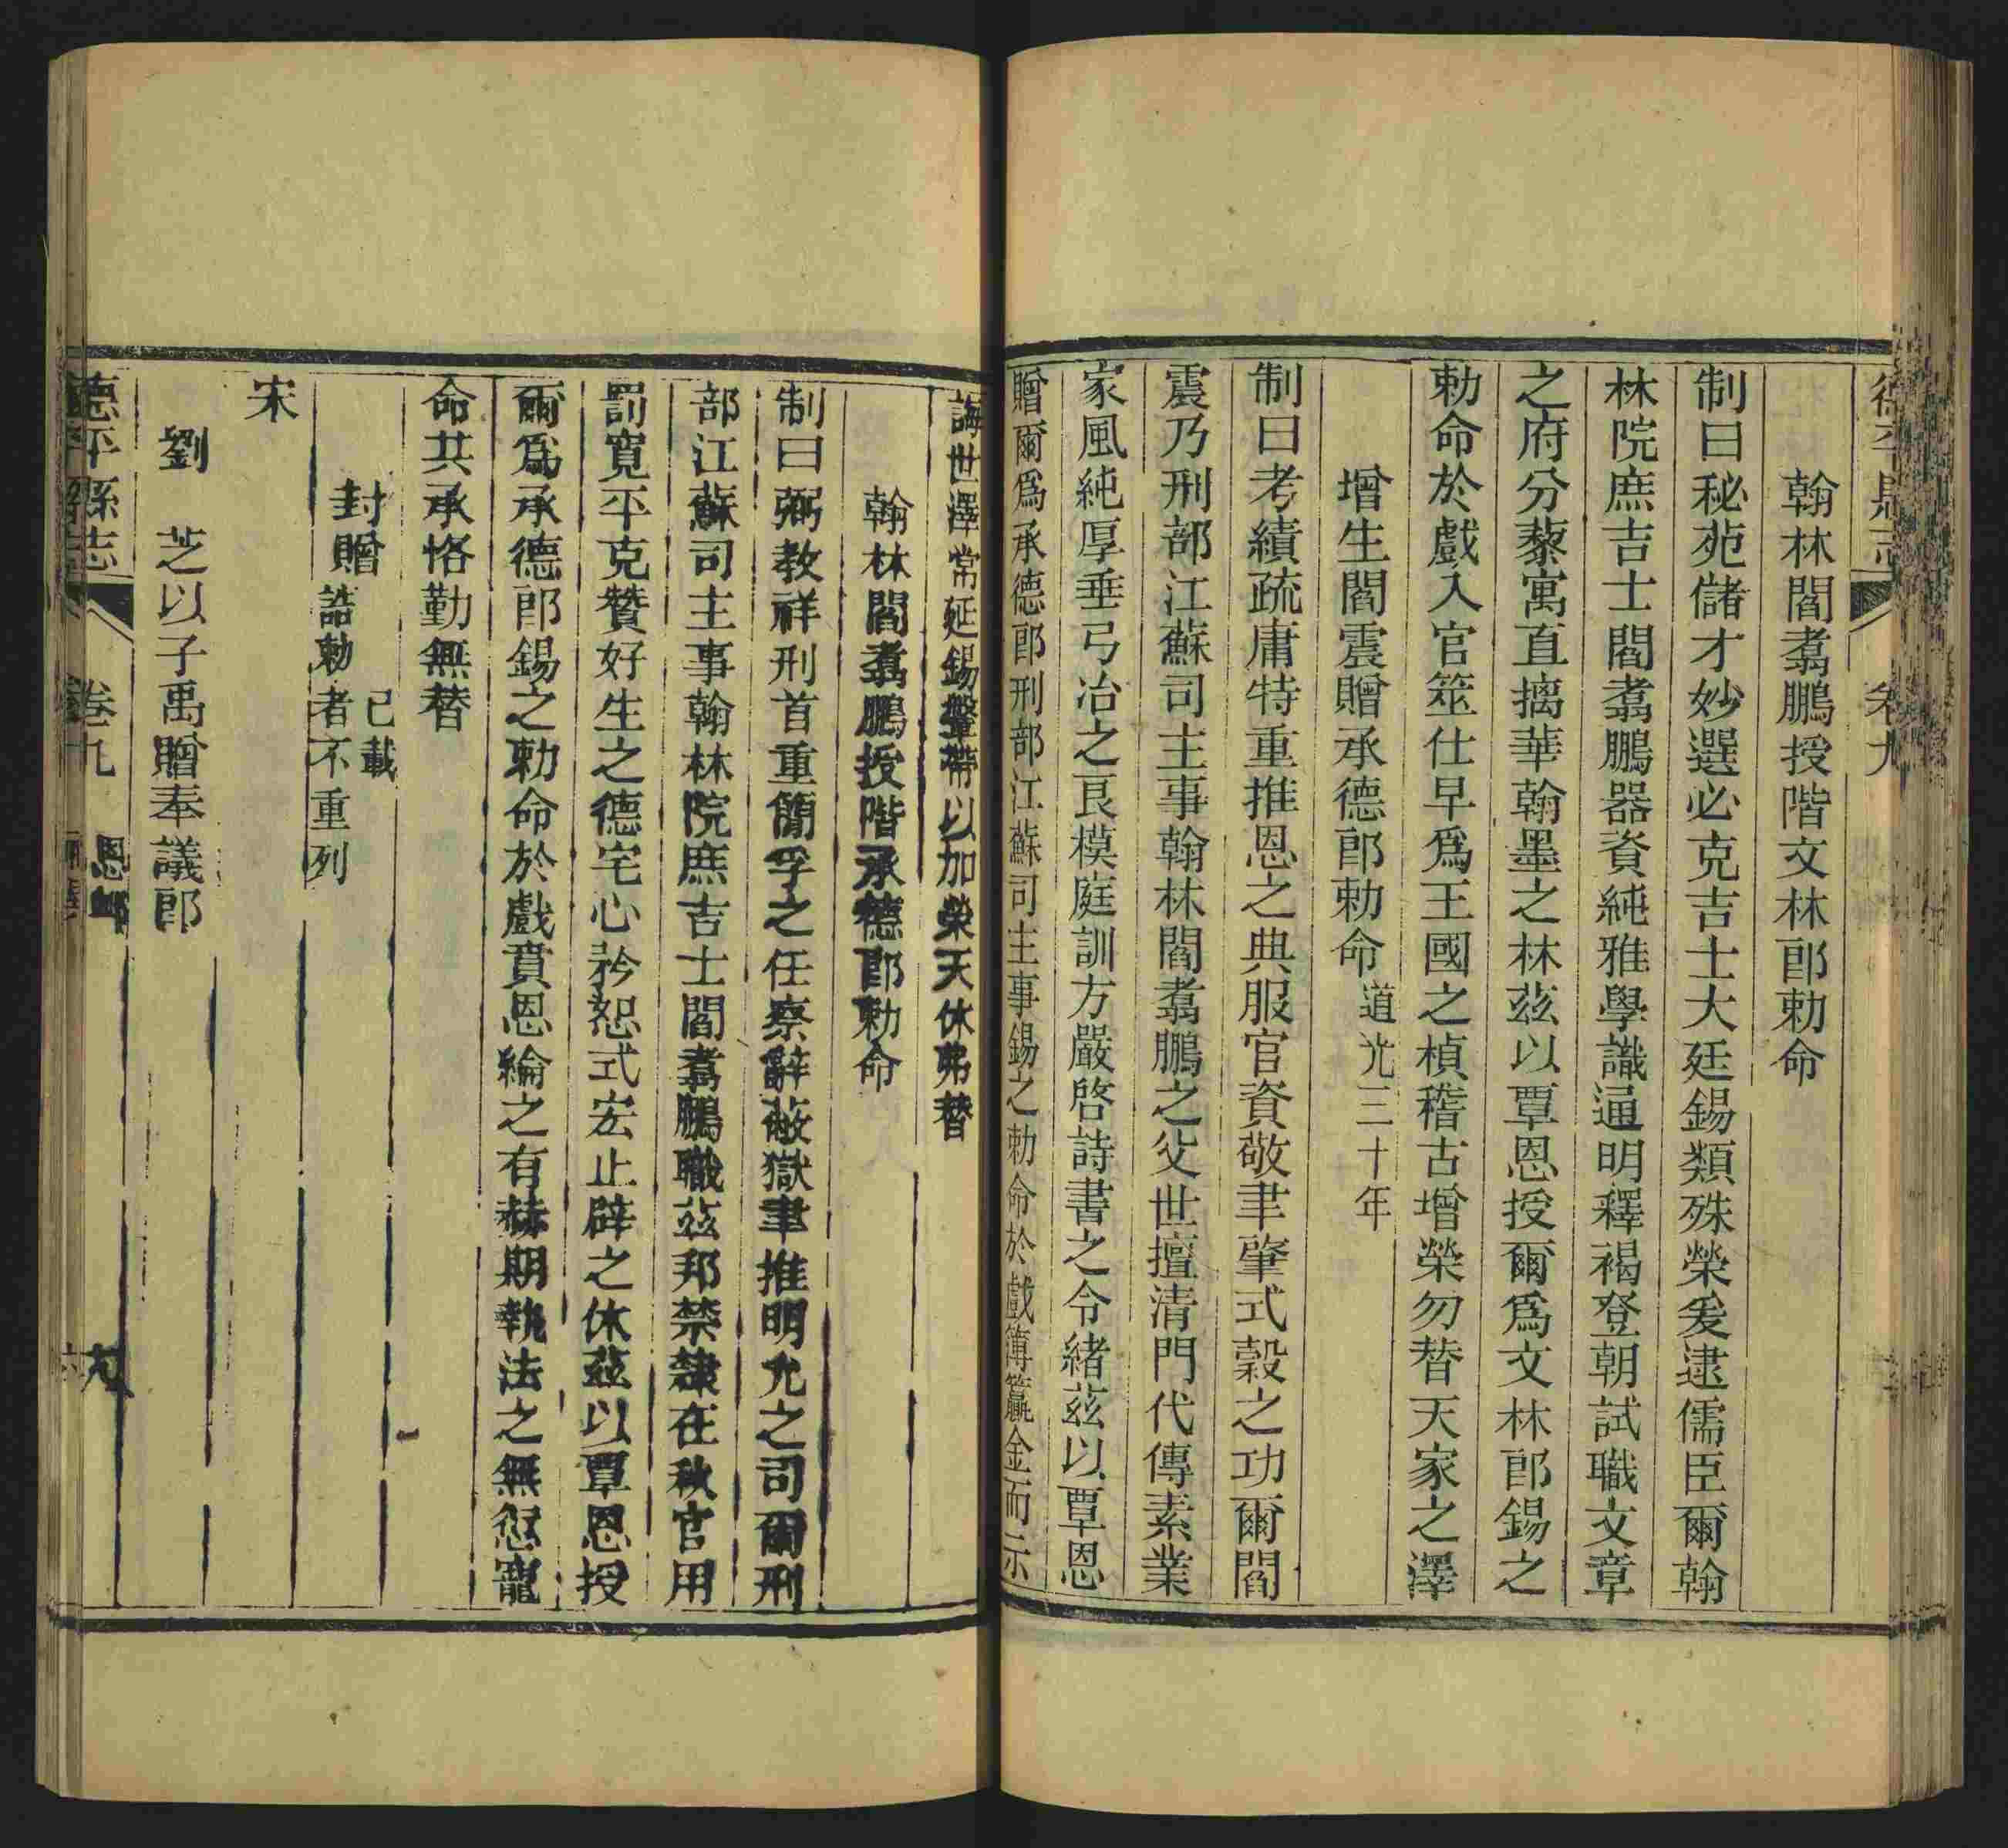 德平縣志　卷九
翰林閻翥鵬授階文林郎勅命
制曰秘苑儲才妙選必克吉士大廷錫類殊榮爰逮儒臣爾翰
林院庶吉士閻翥鵬器資純雅學識通明釋褐登朝試職文章
之府分藜寓直摛華翰墨之林茲以覃恩授爾爲文林郎錫之
勅命於戲入官筮仕早爲王國之楨稽古增榮勿替天家之澤
增生閻震贈承德郎勅命道光三十年
制曰考績疏庸特重推恩之典服官資敬聿肇式穀之功爾閻
震乃刑部江蘇司主事翰林閻翥鵬之父世擅清門代傳素業
家風純厚垂弓冶之良模庭訓方嚴啓詩書之令緒茲以覃恩
贈爾爲承德郎刑部江蘇司主事錫之勅命於戲籯金而示
誨世澤常延錫鞶帶以加榮天休弗替
翰林閻翥鵬授階承德郎勅命
制曰弼教祥刑首重簡孚之任察辭蔽獄聿推明允之司爾刑
部江蘇司主事翰林院庶吉士閻翥鵬職茲邦禁隸在秋官用
罰寬平克贊好生之德宅心矜恕式宏止辟之休茲以覃恩授
爾爲承德郎錫之勅命於戲賁恩綸之有赫期執法之無愆寵
命共承恪勤無替
封贈已載誥勅者不重列
宋
劉　芝以子禹贈奉議郎
德平縣志　卷九　恩